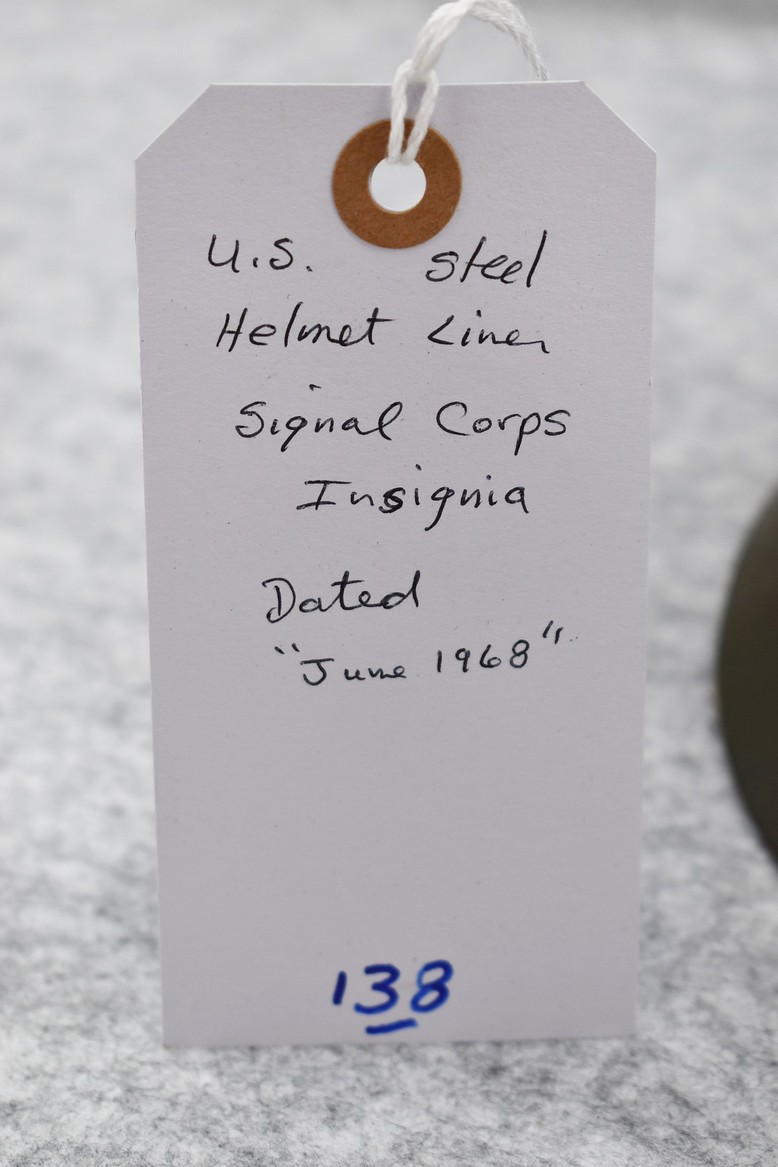 U.S. steel
Helmet Liner
Signal Corps
Insignia
Dated
"June 1968"
138